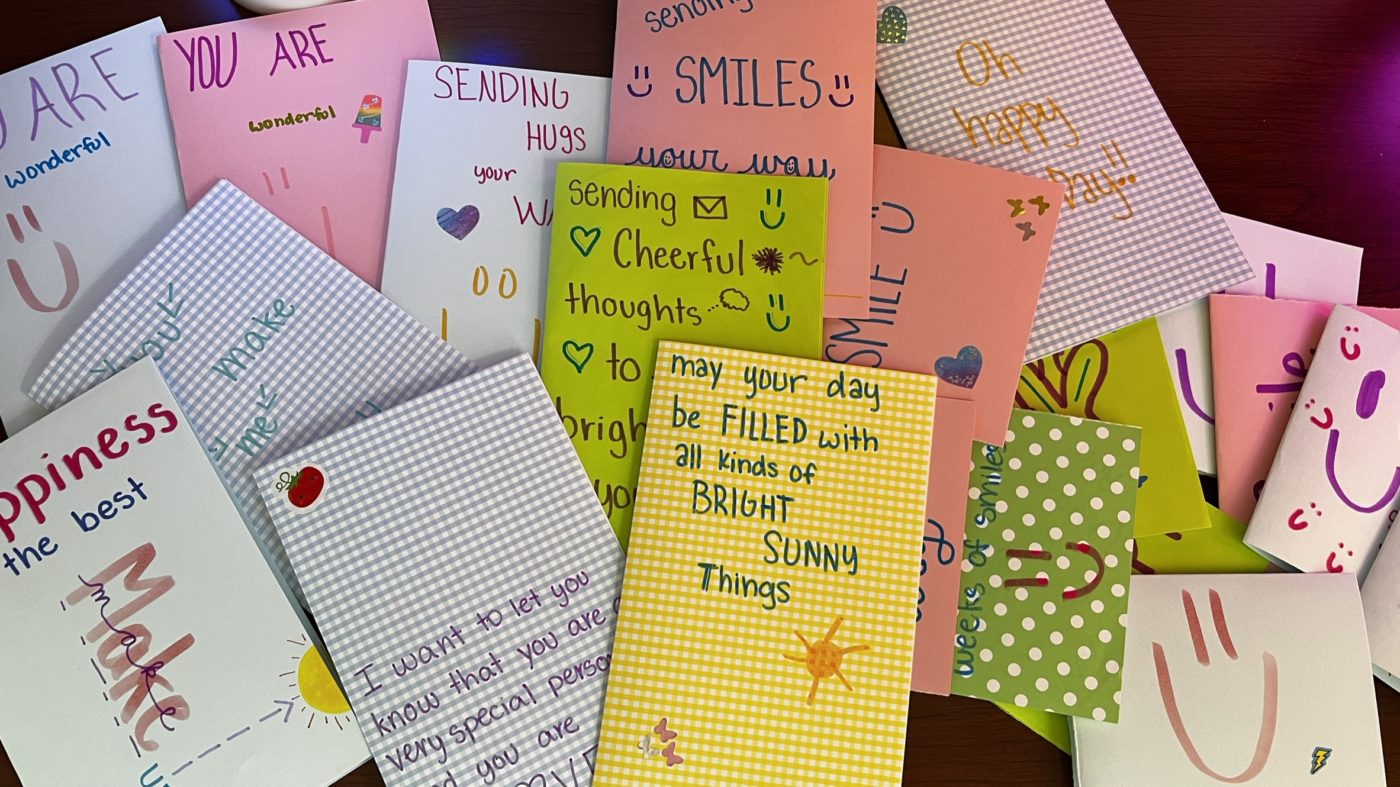 ARE
wonderful
YOU ARE
wonderful
SENDING
HUGS
your
sending
SMILES
your way
Oh
happy
Day!!
sending
Cheerful
thoughts
to
you
make
me
SMILE
the best
Make
make
I want to let you
know that you are
very special
you are
may your day
be FILLED with
all kinds of
BRIGHT
SUNNY
Things
weeks of smiles